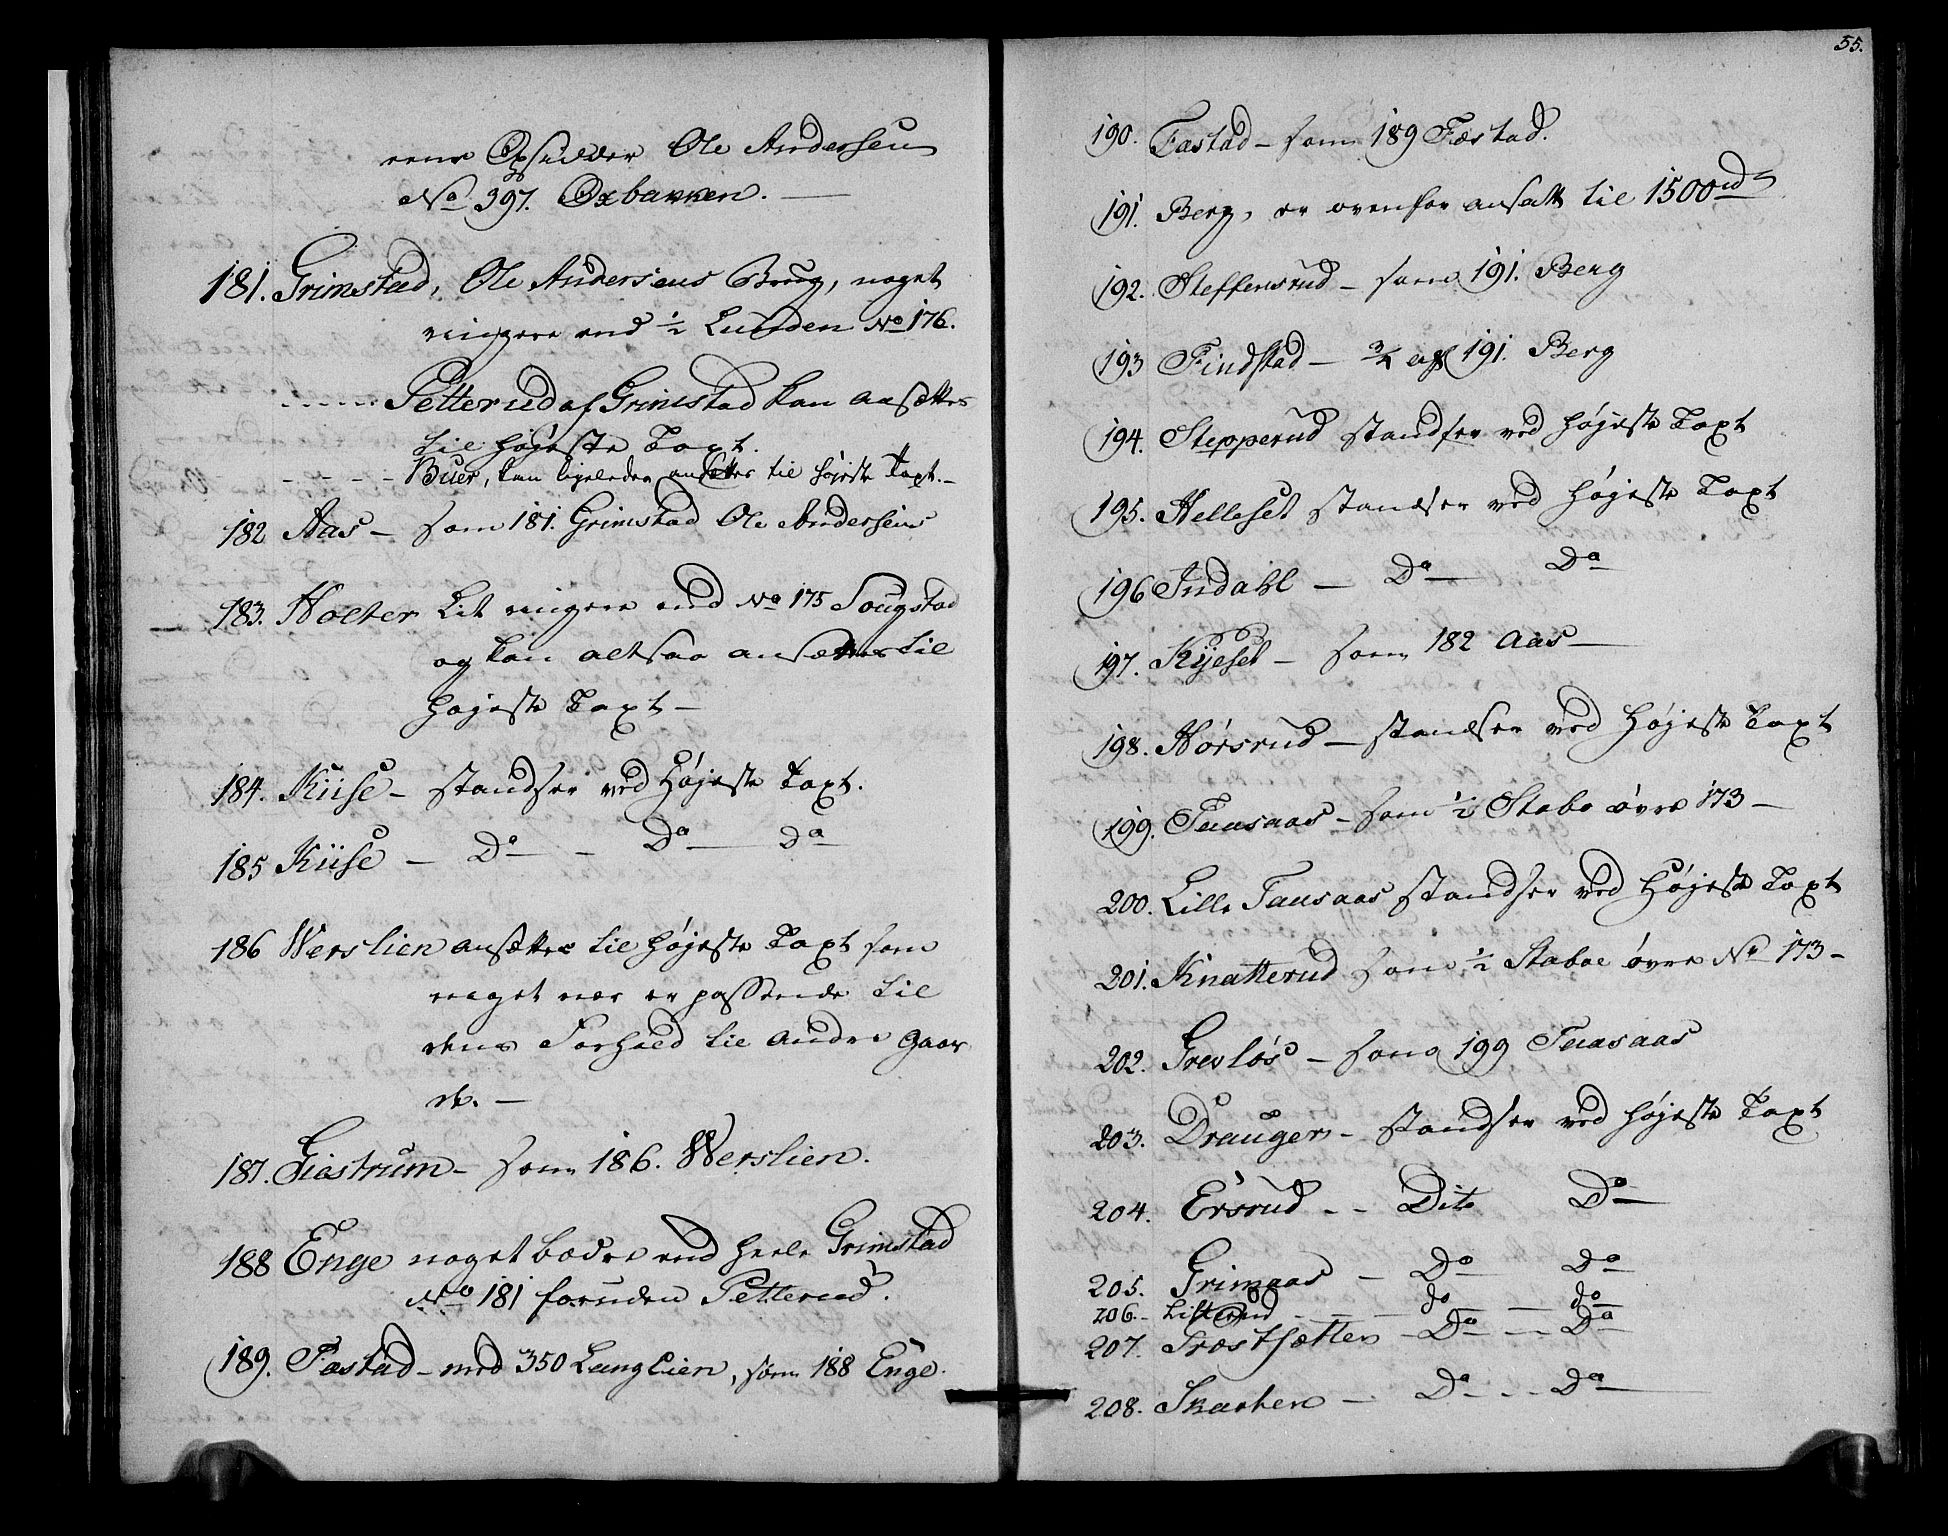 eens Opsidder Ole Andersen
No 397. Oxbakken. —
181. Grimstad, Ole Andersens Brug, noget
ringere end ½ Lunden No 176.
..... Petterud af Grimstad kan ansættes
til højeste Taxt.
- - - - Buer, kan ligeledes ansættes til højeste Taxt. -
182 Aas - som 181. Grimstad Ole Andersens
183. Holter lit ringere end No 175 Sougstad
og kan altsaa ansættes til
højeste Taxt -
184. Kiise - standser ved Højeste Taxt.
185 Kiise - Do - Do - Do
186 Werslien ansættes til højeste Taxt som
meget nær er passende til
dens Forhold til andre Gaar
de. -
187. Giæstrum - som 186. Werslien.
188 Enge noget bedre end heele Grimstad
No 181 foruden Petterud.
189. Fæstad - med 350 Langlien, som 188 Enge.
55.
190. Fæstad - som 189 Fæstad.
191. Berg, er ovenfor ansatt til 1500 rd
192. Steffensrud - som 191. Berg
193 Findstad - ¾ af 191. Berg
194. Stepperud standser ved højeste Taxt
195. Helleset standser ved højeste Taxt
196 Indahl - Do - Do
197. Kyeset - som 182 Aas -
198. Hørsrud - standser ved højeste Taxt
199. Tausaas - som ½ Stabo øvre 173 -
200. Lille Tausaas standser ved Højeste Taxt
201. Knatterud som ½ Staboe øvre No 173 -
202. Grevløs - som 199 Tausaas
203. Drauger - standser ved højeste Taxt
204. Ersrud - - Dito Do
205. Grimaas - Do - Do
206. - Listerud - - do - do
207. Træstsætter - Do - - Do
208. Skarten - Do - - Do